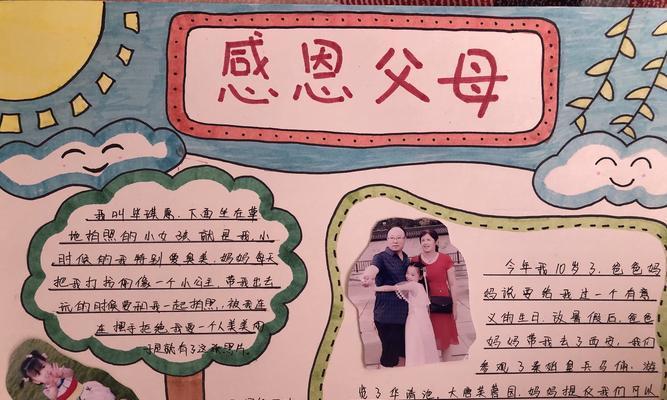 感恩父母
我叫华璞惠，下面坐在草
地拍照的小女孩就是我，小
时候的我特别爱臭美，妈妈每天
把我打扮的像一个小公主，带我出去
玩的时候要和我一起拍照，被我连
连摆手拒绝，我要一个人美美的
于是就有了这张照片。
今年我10岁了，爸爸妈
妈说要给我过一个有意
义的生日，放暑假后，爸爸
妈妈带我去了西安，我们
参观了秦始皇兵马俑，游
览了华清池，大唐芙蓉园，妈妈提议我们可以